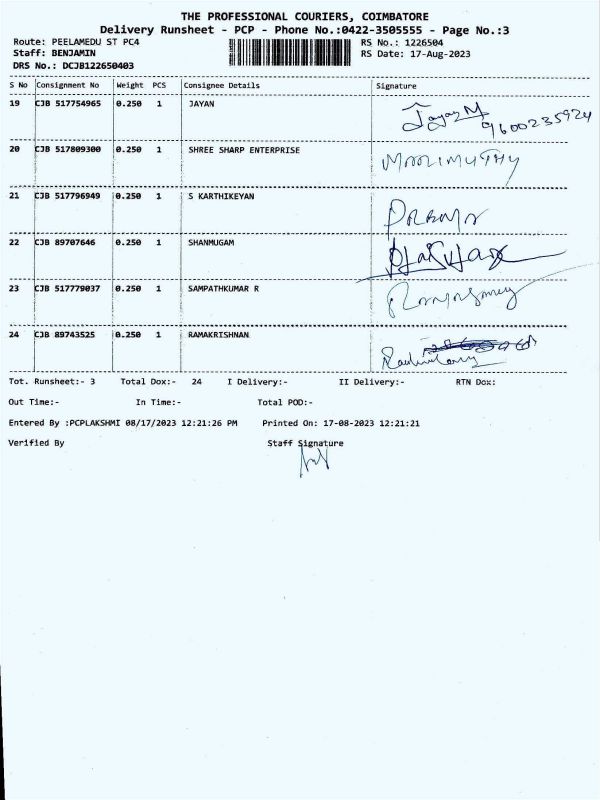 THE PROFESSIONAL COURIERS, COIMBATORE
Delivery Runsheet - PCP - Phone No.:0422-3505555 - Page No.:3
Route: PEELAMEDU ST PC4 RS No.: 1226504
Staff: BENJAMIN RS Date: 17-Aug-2023
DRS No.: DCJB122650403
S No Consignment No Weight PCS Consignee Details Signature
19 CJB 517754965 0.250 1 JAYAN Jayan M
9600235924
20 CJB 517809300 0.250 1 SHREE SHARP ENTERPRISE
21 CJB 517796949 0.250 1 S KARTHIKEYAN
22 CJB 89707646 0.250 1 SHANMUGAM
23 CJB 517779037 0.250 1 SAMPATHKUMAR R
24 CJB 89743525 0.250 1 RAMAKRISHNAN
Tot. Runsheet:- 3 Total Dox:- 24 I Delivery:- II Delivery:- RTN Dox:
Out Time:- In Time:- Total POD:-
Entered By :PCPLAKSHMI 08/17/2023 12:21:26 PM Printed On: 17-08-2023 12:21:21
Verified By Staff Signature